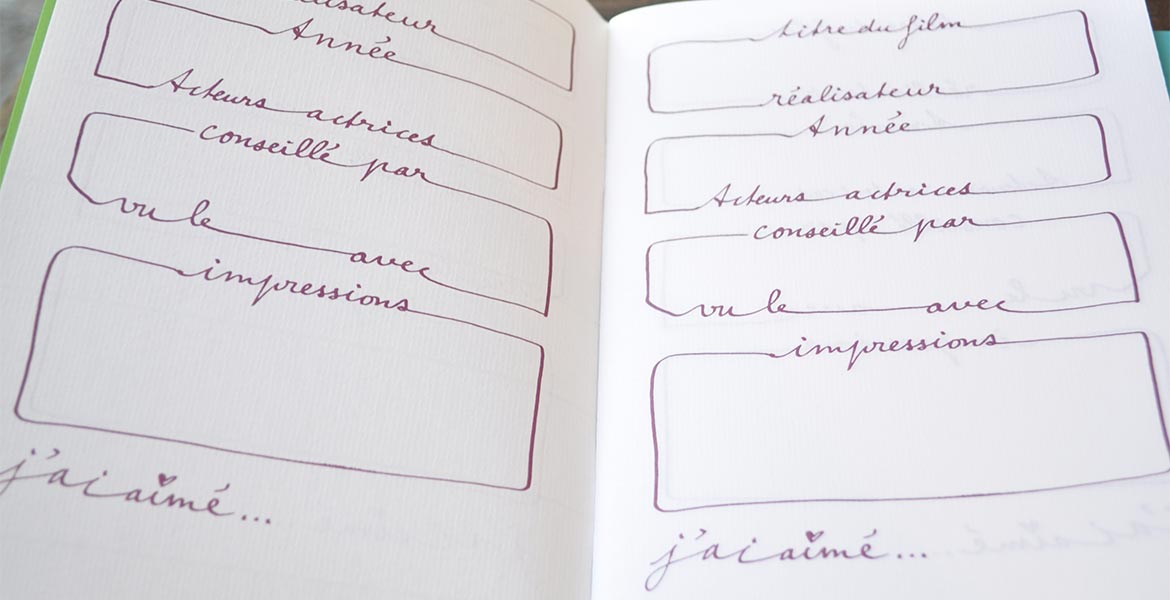 alisateur
Année
Acteurs actrices
conseillé par
vu le avec
impressions
j'ai aimé...
titre du film
réalisateur
Année
Acteurs actrices
conseillé par
vu le avec
impressions
j'ai aimé...